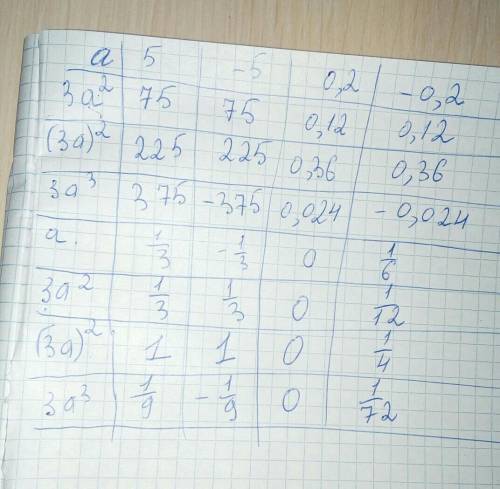 a 5 -5 0,2 -0,2
3a² 75 75 0,12 0,12
(3a)² 225 225 0,36 0,36
3a³ 375 -375 0,024 -0,024
a. 1/3 -1/3 0 1/6
3a² 1/3 1/3 0 1/12
(3a)² 1 1 0 1/4
3a³ 1/9 -1/9 0 1/72